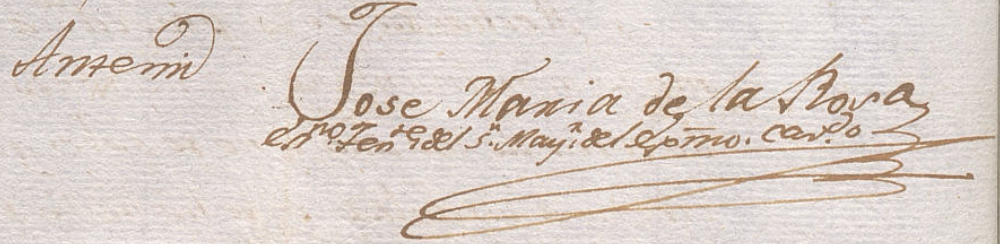 Ante mi
Jose Maria de la Rosa
es.no Ten.te del S.r May.r del Exmo. Cav.do